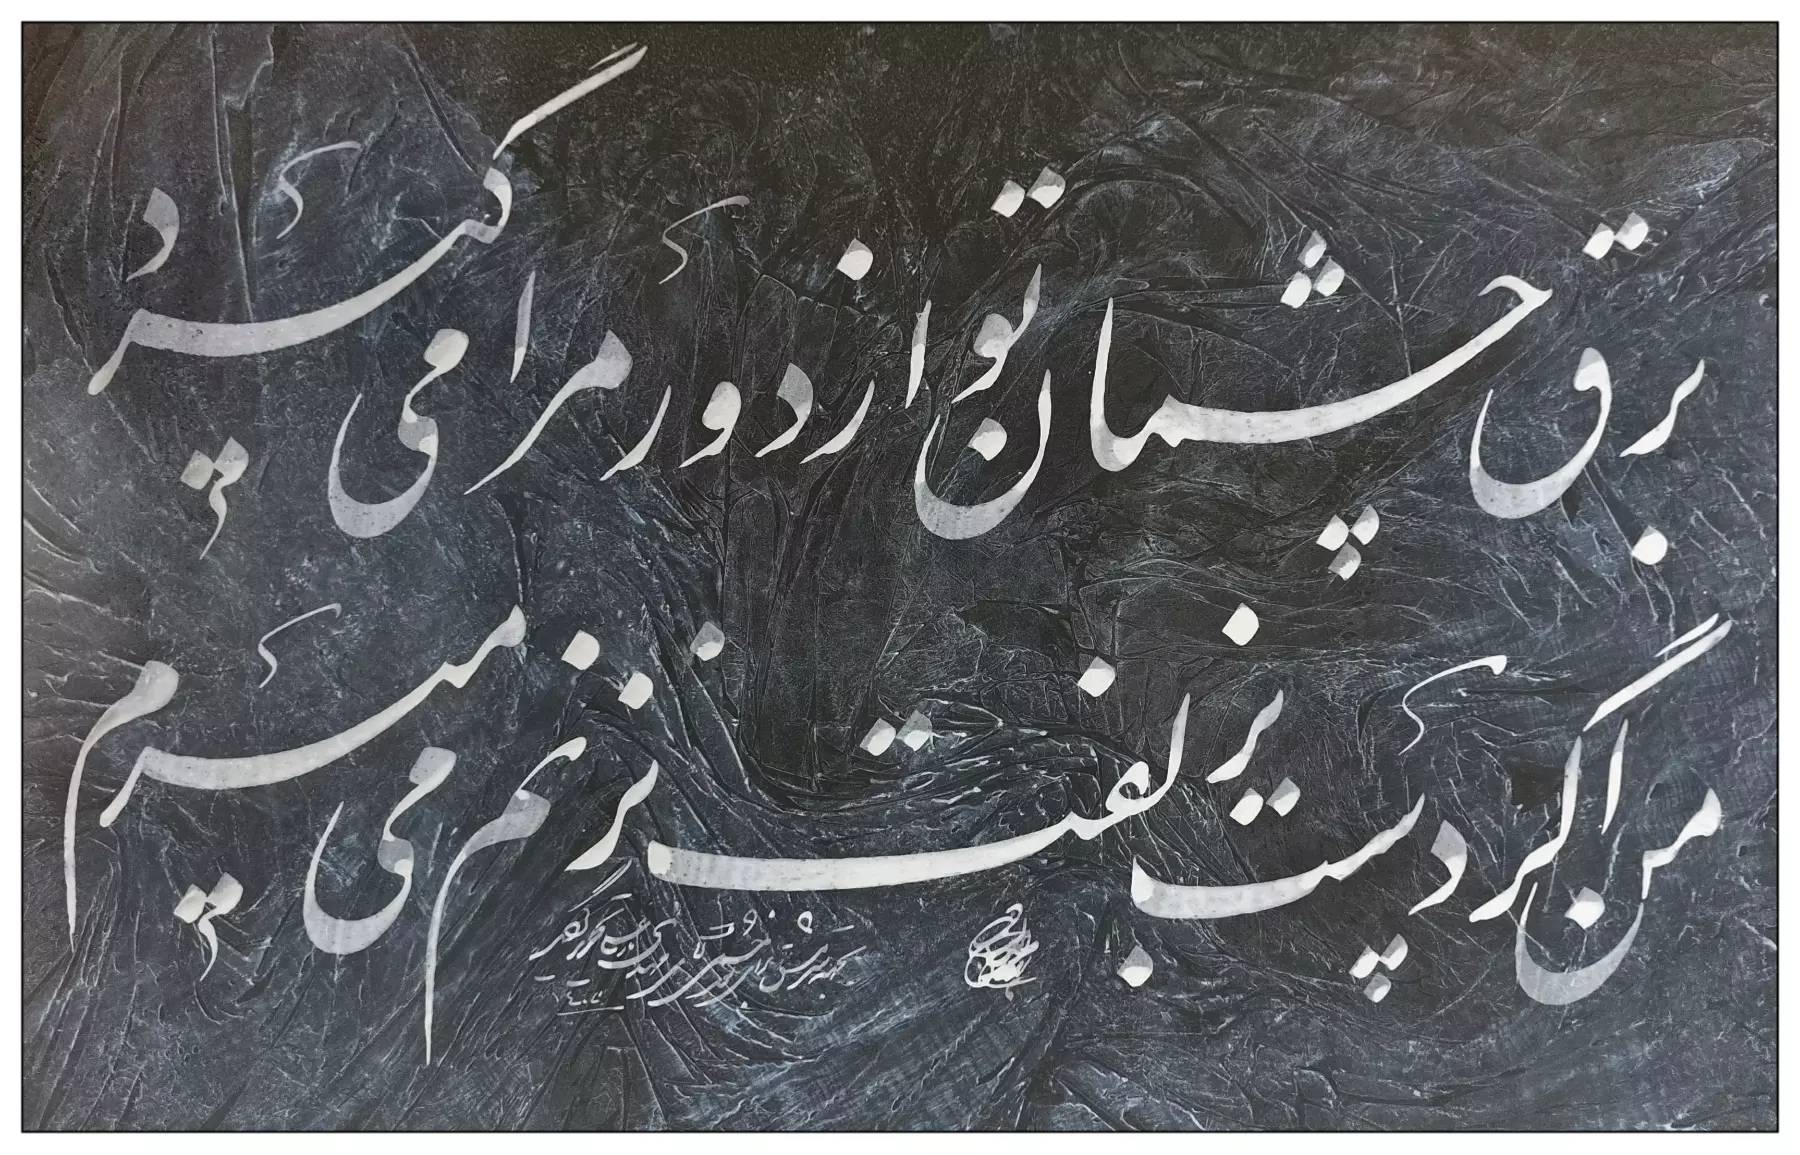 برق چشمان تو از دور مرا می گیرد
من اگر دست بزلفت نزنم می میرم